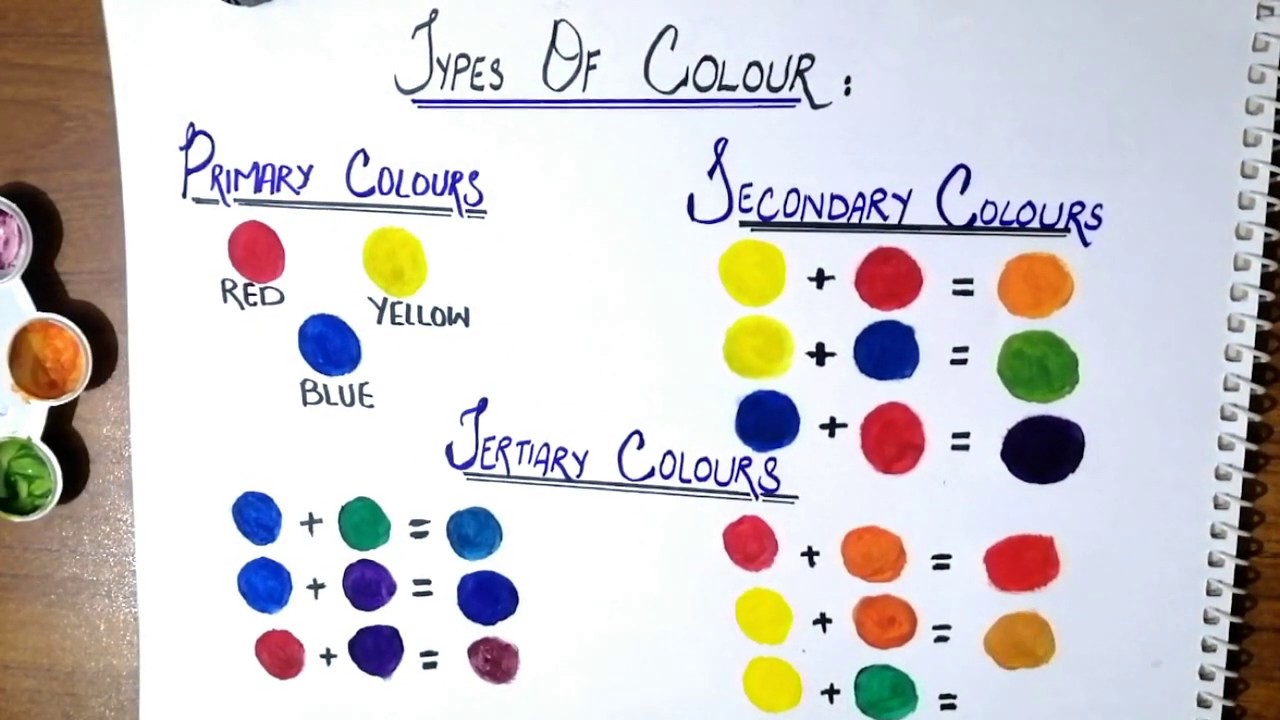 TYPES OF COLOUR:
PRIMARY COLOURS
RED
YELLOW
BLUE
SECONDARY COLOURS
+ =
+ =
+ =
TERTIARY COLOURS
+ =
+ =
+ =
+ =
+ =
+ =